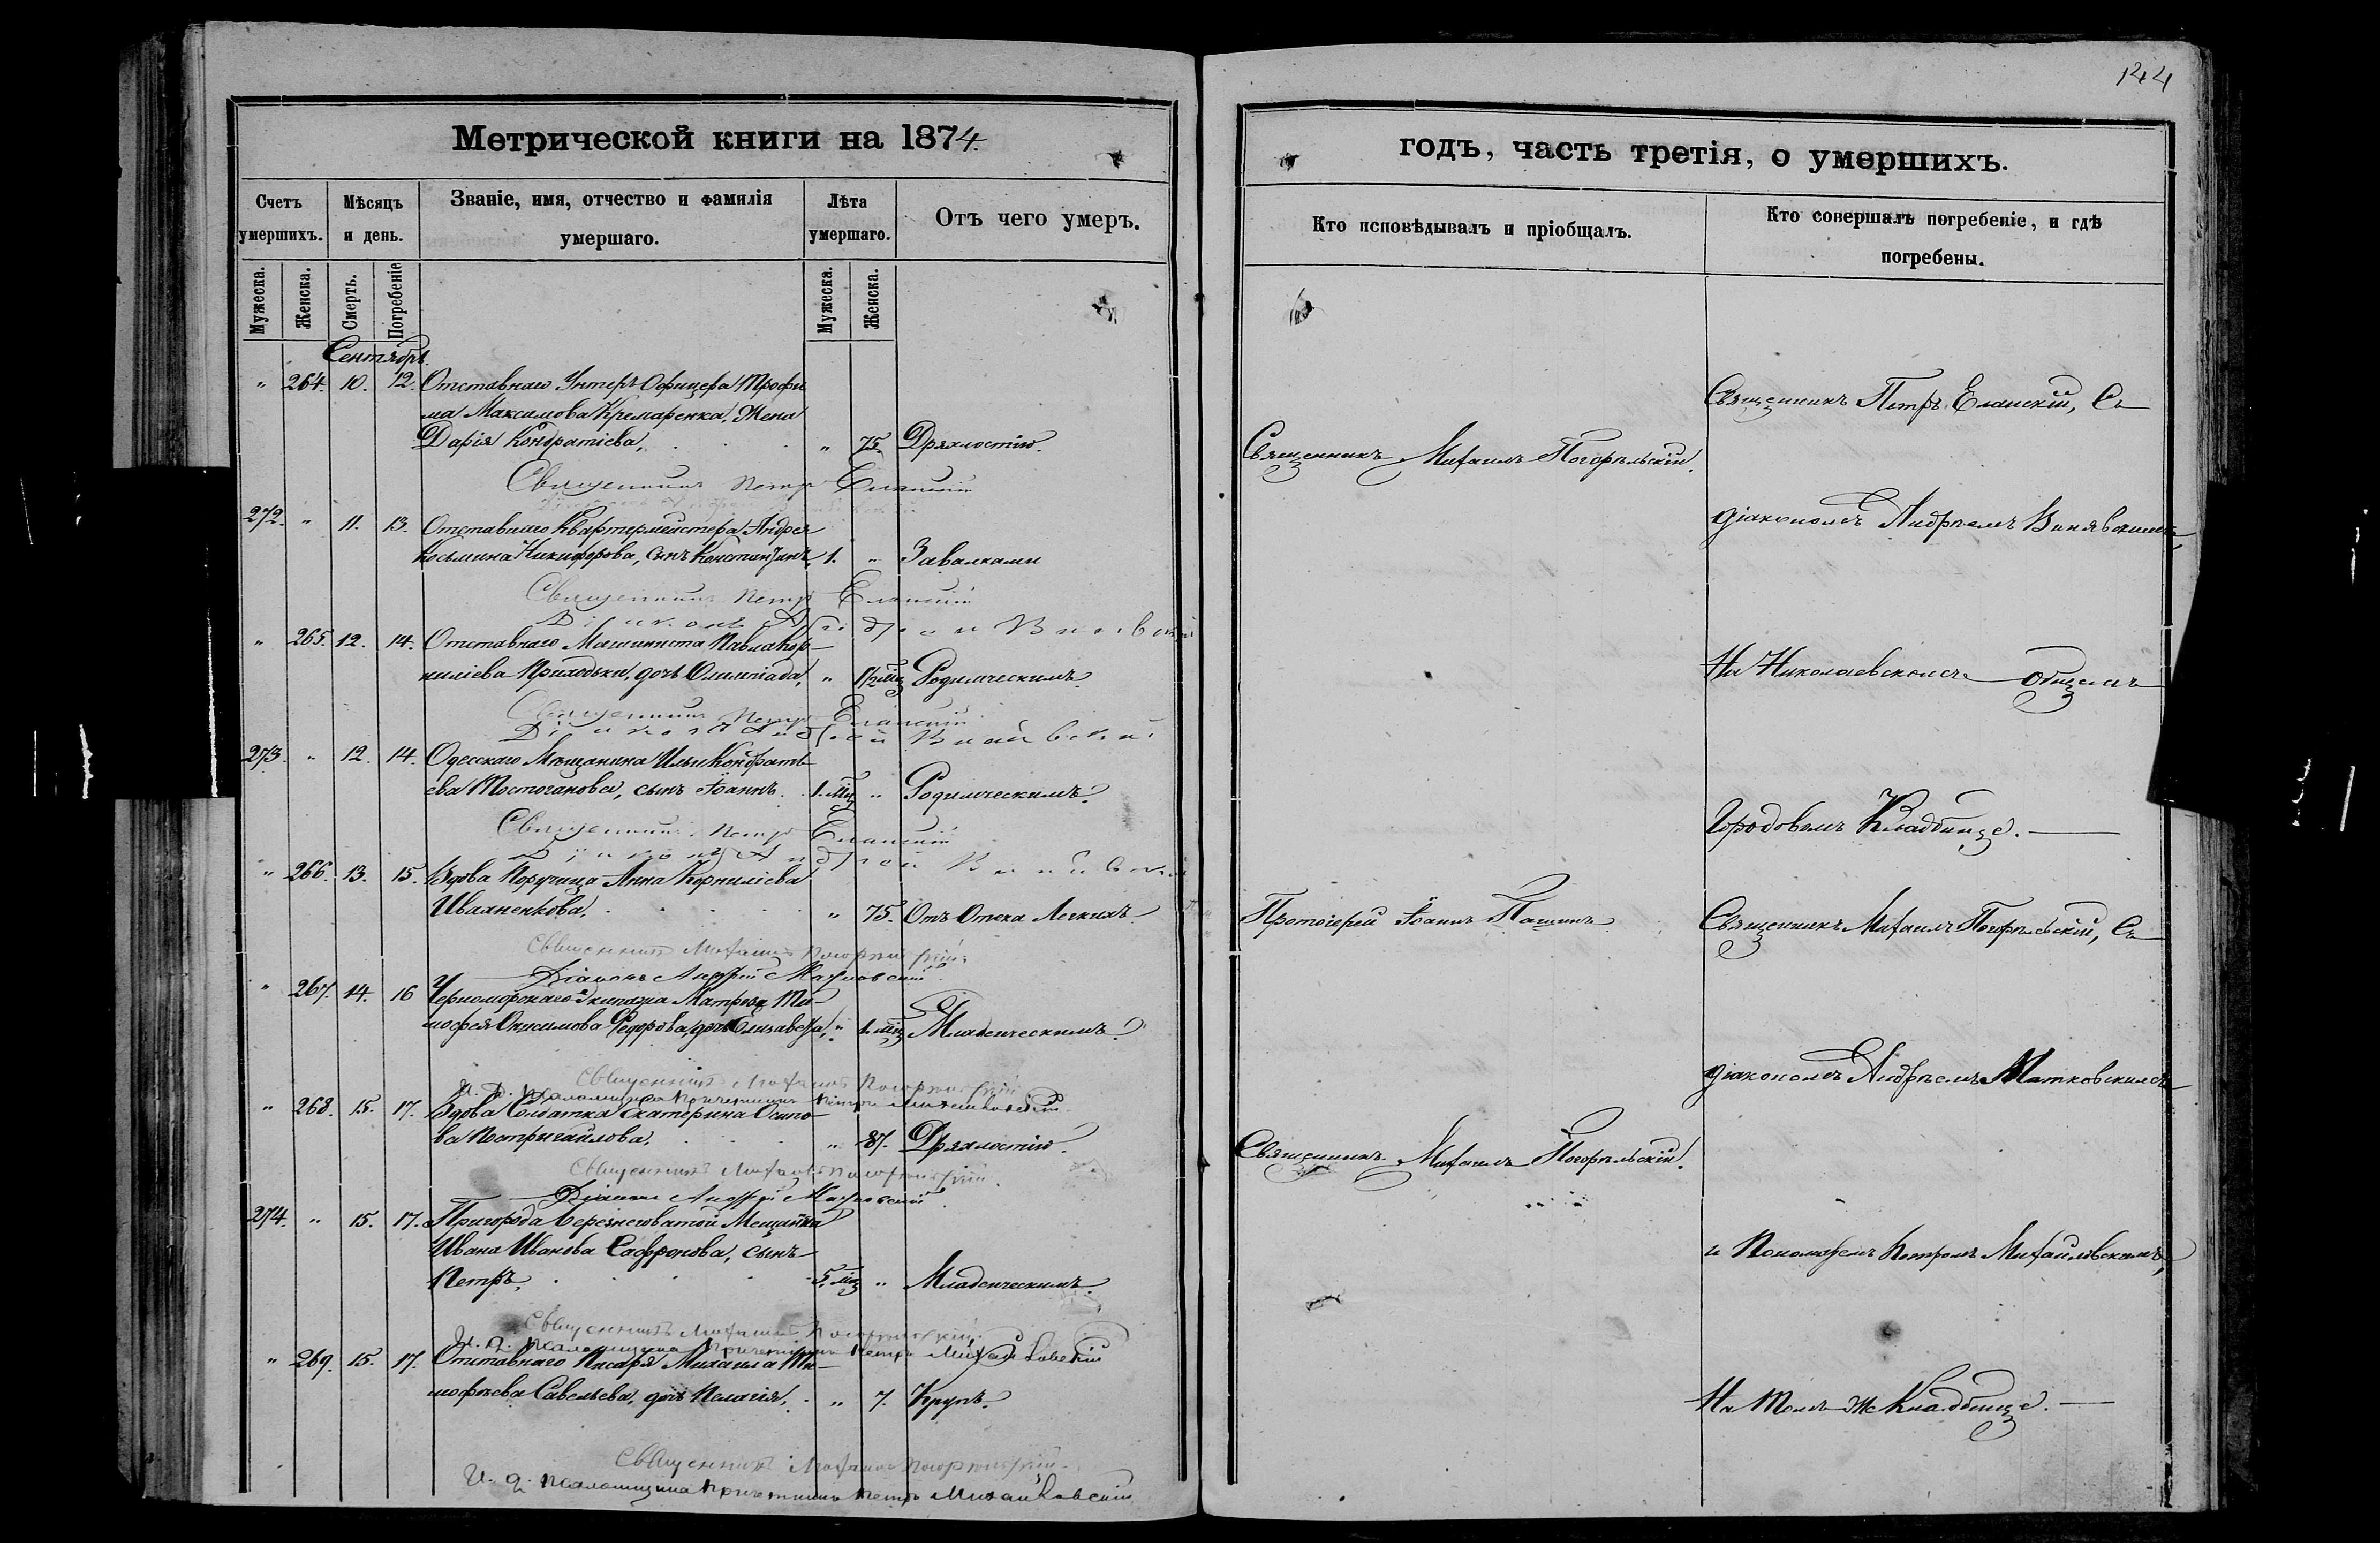 144
Метрической книги на 1874
годъ, часть третія, о умершихъ.
Счетъ умершихъ.
Мѣсяцъ и день.
Званіе, имя, отчество и фамилія умершаго.
Лѣта умершаго.
Отъ чего умеръ.
Кто исповѣдывалъ и пріобщалъ.
Кто совершалъ погребеніе, и гдѣ погребены.
Мужеска.
Женска.
Смерть.
Погребеніе
Мужеска.
Женска.
Сентябрь
" 264. 10. 12. Отставнаго Унтеръ Офицера Трофи
ма Максимова Кремаренка, Жена
Дарія Кондратіева, " 75. Дряхлостію.
Священникъ Петръ Еланскій
272. " 11. 13. Отставнаго Квартермейстера Андрея
Косьмина Никифорова, сынъ Константинъ 1. " Завалками
Священникъ Петръ Еланскій
Діаконъ Андрей
" 265. 12. 14. Отставнаго Машиниста Павла Кор-
нилiева Приходьки, дочь Олимпіада, " 1/2 мц Родимическимъ.
Священникъ Петръ Еланскій
Діаконъ Андрей
273. " 12. 14. Одесскаго Мѣщанина Ильи Кондрать
ева Постоганова, сынъ Іоаннъ. 1. мц " Родимическимъ.
Священникъ Петръ Еланскій
Діаконъ Андрей
" 266. 13. 15. Вдова Поручица Анна Корниліева
Иваненкова, " 75. Отъ Отека Легкихъ
Священникъ Михаилъ Погорѣльскій
Діаконъ Андрей Матковскій
" 267. 14. 16 Черноморскаго Экипажа Матроза Ти-
мофея Онисимова Федорова, дочь Елизавета, " 1. мц Младенческимъ.
Священникъ Михаилъ Погорѣльскій
И. д. псаломщика Причетникъ Петръ Михайловскій
" 268. 15. 17. Вдова Солдатка Екатерина Осипо-
ва Постригайлова, " 87. Дряхлостію.
Священникъ Михаилъ Погорѣльскій.
Діаконъ Андрей Матковскій
274. " 15. 17. Пригорода Березнеговатой Мещанина
Ивана Иванова Сафронова, сынъ
Петръ, 5. мц " Младенческимъ.
Священникъ Михаилъ Погорѣльскій
И. д. псаломщика Причетникъ Петръ Михайловскій
" 269. 15. 17. Отставнаго Писаря Михаила Ти-
мофѣева Савельева, дочь Пелагія, " 7. Крупъ.
Священникъ Михаилъ Погорѣльскій
И. д. псаломщика Причетникъ Петръ Михайловскій
Священникъ Михаилъ Погорѣльскій.
Протоіерей Іоаннъ
Священникъ Михаилъ Погорѣльскій.
Священникъ Петръ Еланскій, Съ
діакономъ Андреемъ
На Николаевскомъ общемъ
Городовомъ Кладбище.
Священникъ Михаилъ Погорѣльскій, Съ
діакономъ Андреемъ Матковскимъ
и Пономаремъ Петромъ Михайловскимъ,
На томъ же Кладбище.